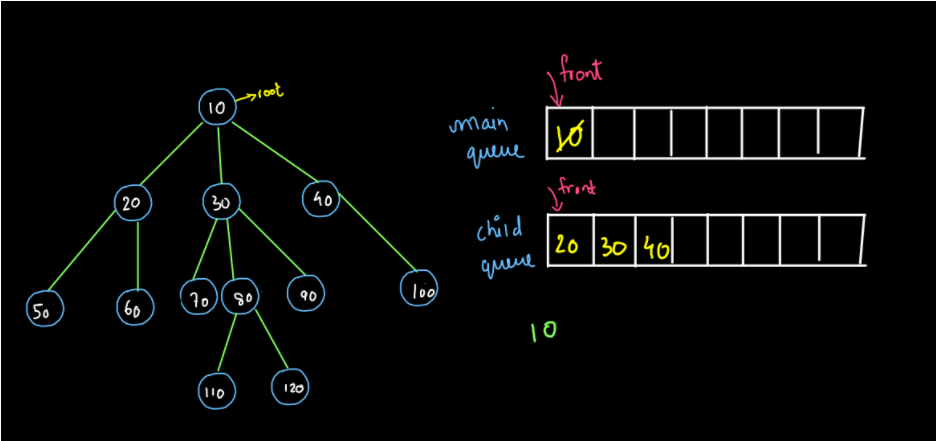 10 → root
20 30 40
50 60 70 80 90 100
110 120
front
main queue
10
front
child queue
20 30 40
10